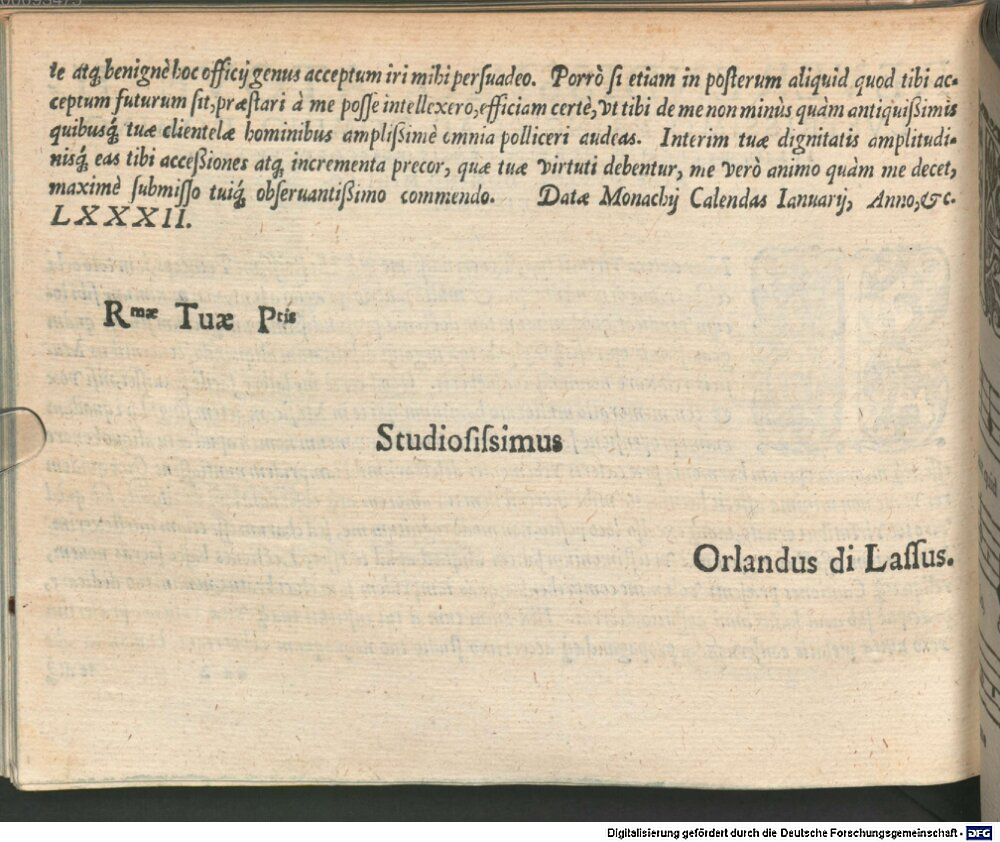 te atq́; benignè hoc officij genus acceptum iri mihi persuadeo. Porrò si etiam in posterum aliquid quod tibi ac-
ceptum futurum sit, præstari à me posse intellexero, efficiam certè, vt tibi de me non minùs quàm antiquißimis
quibusq́; tuæ clientelæ hominibus amplißimè omnia polliceri audeas. Interim tuæ dignitatis amplitudi-
nisq́; eas tibi acceßiones atq́; incrementa precor, quæ tuæ virtuti debentur, me verò animo quàm me decet,
maximè submisso tuiq́; obseruantißimo commendo. Datæ Monachij Calendas Ianuarij, Anno, &c.
LXXXII.
Rmæ Tuæ Ptis
Studiosissimus
Orlandus di Lassus.
Digitalisierung gefördert durch die Deutsche Forschungsgemeinschaft - DFG